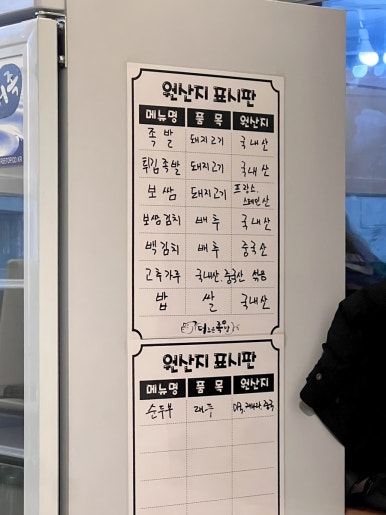 원산지 표시판
메뉴명 품목 원산지
족발 돼지고기 국내산
튀김족발 돼지고기 국내산
보쌈 돼지고기 프랑스, 스페인산
보쌈김치 배추 국내산
백김치 배추 중국산
고추가루 국내산, 중국산 섞음
밥 쌀 국내산
원산지 표시판
메뉴명 품목 원산지
순두부